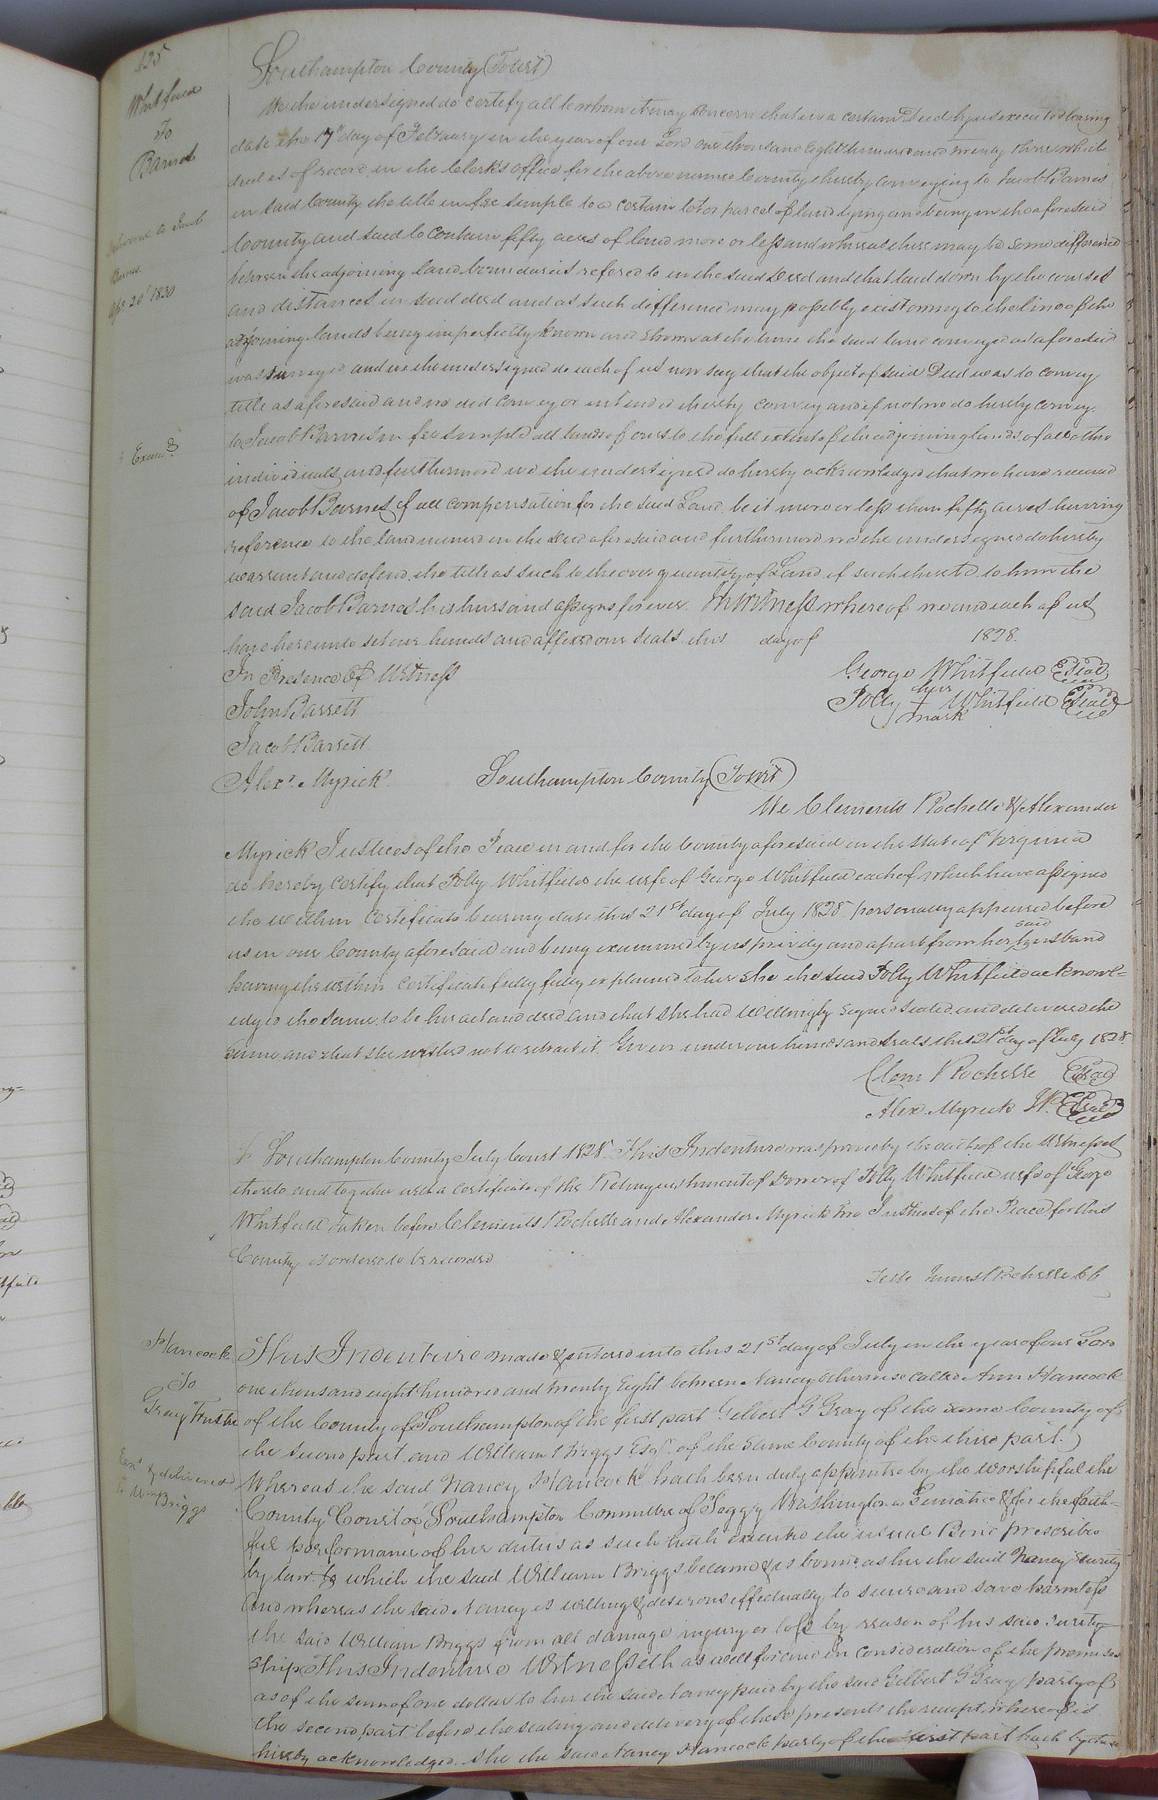 425
Whitfield
To
Barnes
Delivered to Jacob
Barnes
Apr 20th 1830
Exam.d
Southampton County (Towit)
We the undersigned do certify all to whom it may concern that in a certain Deed by us executed bearing
date the 17th day of February in the year of our Lord one thousand eight hundred and twenty three which
deed is of record in the Clerk's office for the above named County thereby conveying to Jacob Barnes
in said County the title in fee simple to a certain lot or parcel of land lying and being in the aforesaid
County and said to contain fifty acres of land more or less and whereas there may be some difference
between the adjoining land boundaries refered to in the said Deed and that laid down by the courses
and distances in said deed and as such difference may possibly exist owing to the line of the
adjoining lands being imperfectly known and shown at the time the said land conveyed as aforesaid
was surveyed and we the undersigned do each of us now say that the object of said Deed was to convey
title as aforesaid and we did convey or intended thereby convey and if not we do hereby convey
to Jacob Barnes in fee simple all lands of ours to the full extent of the adjoining lands of all other
individuals, and furthermore we the undersigned do hereby acknowledge that we have received
of Jacob Barnes full compensation for the said Land be it more or less than fifty acres having
reference to the land named in the Deed aforesaid and furthermore we the undersigned do hereby
warrant and defend the title as such to the over quantity of Land if such there be to him the
said Jacob Barnes his heirs and assigns forever. In Witness whereof we and each of us
have hereunto set our hands and affixed our seals this day of 1828.
In Presence Of Witness
George Whitfield (Seal)
John Barrett
Polly her + mark Whitfield (Seal)
Jacob Barrett
Alexr Myrick
Southampton County (Towit)
We Clements Rochelle & Alexander
Myrick Justices of the Peace in and for the County aforesaid in the State of Virginia
do hereby certify that Polly Whitfield the wife of George Whitfield each of which have assigned
the within Certificate bearing date this 21st day of July 1828 personally appeared before
us in our County aforesaid and being examined by us privily and apart from her said husband
having the within Certificate fully fully explained to her she the said Polly Whitfield acknowl-
edged the same to be her act and deed and that she had willingly signed sealed and delivered the
same and that she wished not to retract it. Given under our hands and seals this 21st day of July 1828.
Clem Rochelle (Seal)
Alex Myrick JP (Seal)
Southampton County July Court 1828. This Indenture was proved by the oath of the Witnesses
thereto and together with a certificate of the Relinquishment of Dower of Polly Whitfield wife of George
Whitfield taken before Clements Rochelle and Alexander Myrick two Justices of the Peace for this
County is ordered to be recorded
Teste Rochelle CC
Hancock
To
Gray Trustee
Exd & delivered
to Wm
Briggs
This Indenture made & entered into this 21st day of July in the year of our Lord
one thousand eight hundred and twenty Eight between Nancy otherwise called Ann Hancock
of the County of Southampton of the first part Gilbert G Gray of the same County of
the second part and William Briggs Esqr. of the same County of the third part.)
Whereas the said Nancy Hancock hath been duly appointed by the worshipful the
County Court of Southampton Committee of Peggy Washington a Lunatic & for the faith-
ful performance of her duties as such hath executed the usual Bond prescribed
by law to which the said William Briggs became & is bound as her the said Nancy's surety
And whereas the said Nancy is willing & desirous effectually to secure and save harmless
the said William Briggs from all damage injury or loss by reason of his said surety-
ship This Indenture Witnesseth as well for and in consideration of the premises
as of the sum of one dollar to her the said Nancy paid by the said Gilbert G Gray party of
the second part before the sealing and delivery of these presents the receipt whereof is
hereby acknowledged. She the said Nancy Hancock party of the first part hath by these